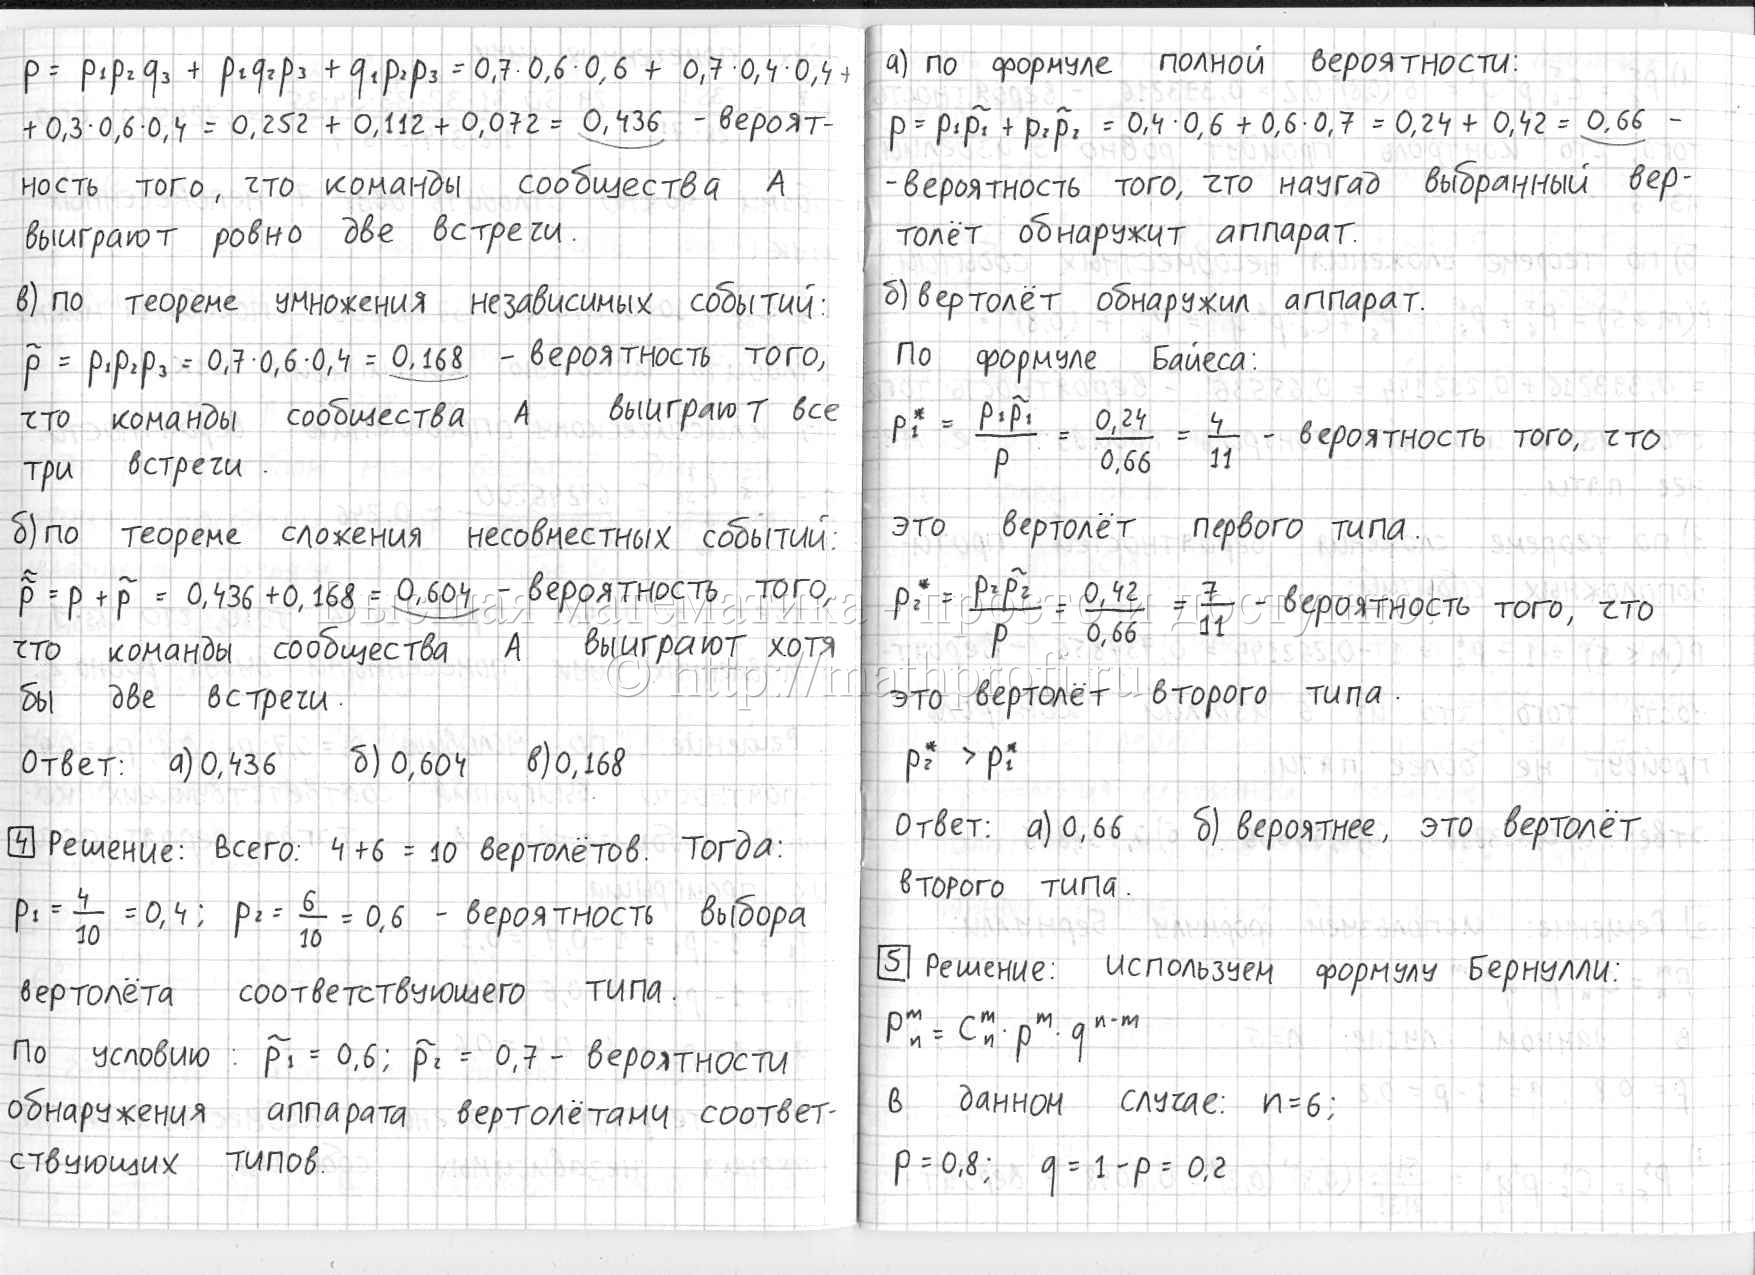 p = p₁p₂q₃ + p₁q₂p₃ + q₁p₂p₃ = 0,7·0,6·0,6 + 0,7·0,4·0,4 +
+ 0,3·0,6·0,4 = 0,252 + 0,112 + 0,072 = 0,436 - вероят-
ность того, что команды сообщества А
выиграют ровно две встречи.
в) по теореме умножения независимых событий:
p̃ = p₁p₂p₃ = 0,7·0,6·0,4 = 0,168 - вероятность того,
что команды сообщества А выиграют все
три встречи.
б) по теореме сложения несовместных событий:
p̃̃ = p + p̃ = 0,436 + 0,168 = 0,604 - вероятность того,
что команды сообщества А выиграют хотя
бы две встречи.
Ответ: а) 0,436 б) 0,604 в) 0,168
4 Решение: Всего: 4+6 = 10 вертолётов. Тогда:
p₁ = 4/10 = 0,4; p₂ = 6/10 = 0,6 - вероятность выбора
вертолёта соответствующего типа.
По условию: p̃₁ = 0,6; p̃₂ = 0,7 - вероятности
обнаружения аппарата вертолётами соответ-
ствующих типов.
а) по формуле полной вероятности:
p = p₁p̃₁ + p₂p̃₂ = 0,4·0,6 + 0,6·0,7 = 0,24 + 0,42 = 0,66 -
- вероятность того, что наугад выбранный вер-
толёт обнаружит аппарат.
б) вертолёт обнаружил аппарат.
По формуле Байеса:
p₁* = p₁p̃₁/p = 0,24/0,66 = 4/11 - вероятность того, что
это вертолёт первого типа.
p₂* = p₂p̃₂/p = 0,42/0,66 = 7/11 - вероятность того, что
это вертолёт второго типа.
p₂* > p₁*
Ответ: а) 0,66 б) вероятнее, это вертолёт
второго типа.
5 Решение: Используем формулу Бернулли:
Pₙᵐ = Cₙᵐ · pᵐ · qⁿ⁻ᵐ
В данном случае: n=6;
p = 0,8; q = 1 - p = 0,2
Высшая математика – просто и доступно!
© http://mathprofi.ru